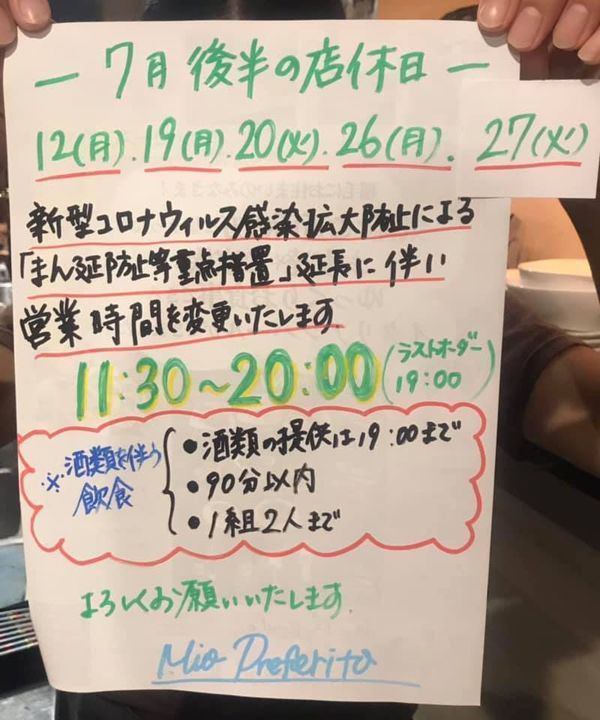 ー 7月後半の店休日 ー
12(月).19(月).20(火).26(月).27(火)
新型コロナウィルス感染拡大防止による
「まん延防止等重点措置」延長に伴い
営業時間を変更いたします
11:30～20:00(ラストオーダー19:00)
※酒類を伴う飲食
•酒類の提供は19:00まで
•90分以内
•1組2人まで
よろしくお願いいたします.
Mio Preferito